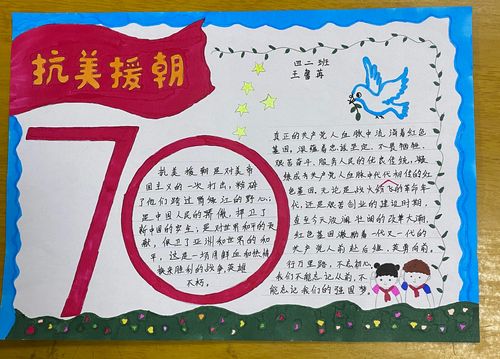 抗美援朝
四二班
70
抗美援朝是对美帝
国主义的一次打击,粉碎
了他们跨过鸭绿江的野心,
是中国人民的骄傲,捍卫了
新中国的安全,是对世界和平的贡
献,保卫了亚洲和世界的和
平,这是一场用鲜血和牺牲
换来胜利的战争,英雄
不朽。
真正的共产党人血脉中流淌着红色
基因,
艰苦奋斗、服务人民的优良传统,凝
炼成为共产党人血脉中代代相传的红
色基因。无论是战火纷飞的革命年
代,还是艰苦创业的建设时期,
直至今天波澜壮阔的改革大潮,
红色基因激励着一代又一代的
共产党人前赴后继,英勇向前。
行万里路,不忘初心,
我们不能忘记从前,不
能忘记我们的强国梦。